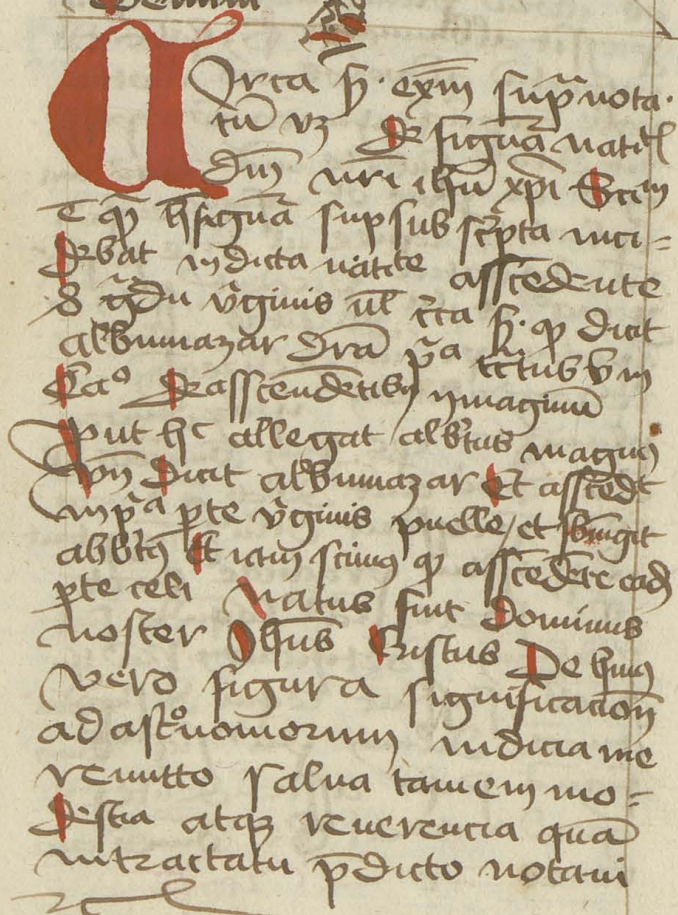 Circa hoc exm supra nota
tum vz de figura natitl
dni nri ihu xpi Sciem
e qd hec figura sup sub scripta inci=
debat in dicta natite asscendente
8 gradu virginis ul circa hoc qd dicit
albumazar dra pa tctus vm
Eao De asscendetibus ymaginu
put hc allegat albtus magnus
vn dicit albumazar Et asscedt
in pa pte virginis puelle et singit
albtus Et iam scimus qd asscedete eade
pte celi Natus fuit dominus
noster Ihus Cristus De huius
vero figura significacion
ad astronomorum indicia me
remitto salua tamem mo=
destia atqz reuerencia qua
in tractatu pdicto notaui